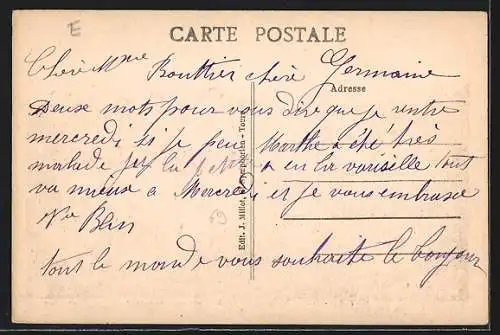 E
CARTE POSTALE
Chère Mme Bouttier chère Germaine
Adresse
Deux mots pour vous dire que je rentre
mercredi si je peu Marthe a été très
malade la petite a eu la variselle tout
va mieux a Mercredi et je vous embrasse
Vve
tout le monde vous souhaite le bonjour
Edit. J. Millet, - Tours